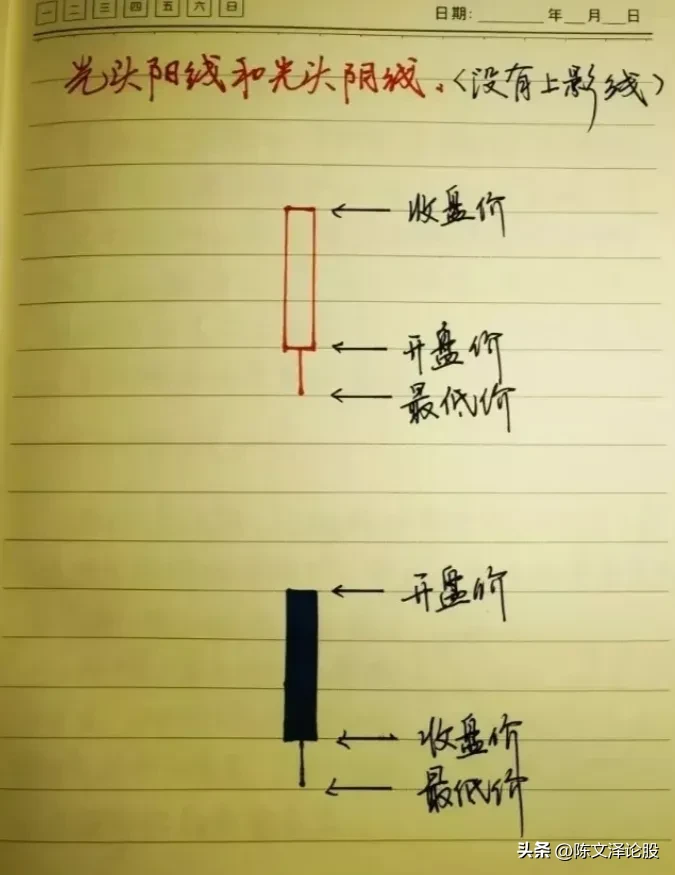 一 二 三 四 五 六 日
日期: ______ 年 __ 月 __ 日
光头阳线和光头阴线。(没有上影线)
收盘价
开盘价
最低价
开盘价
收盘价
最低价
头条 @陈文泽论股